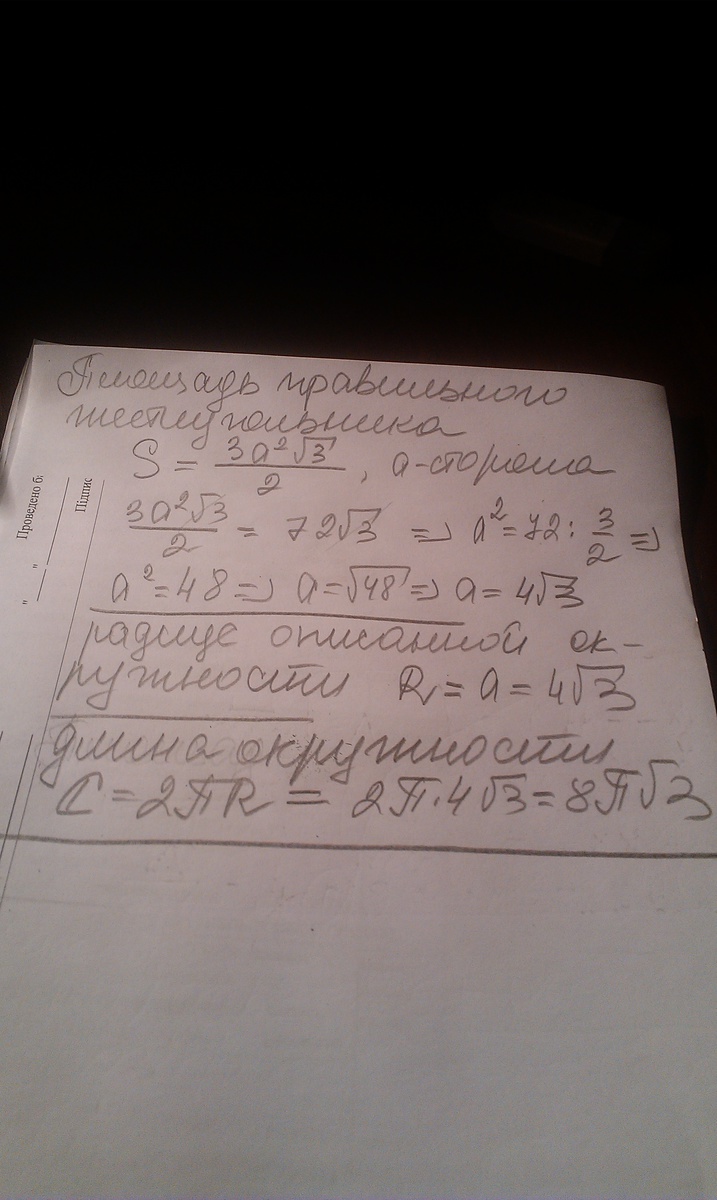 Площадь правильного
шестиугольника
S = 3a²√3/2, a-сторона
3a²√3/2 = 72√3 => a²=72:3/2 =>
a²=48=> a=√48=> a=4√3
радиус описанной ок-
ружности R=a=4√3
длина окружности
C=2πR = 2π·4√3=8π√3
Проведено б
" "
Підпис